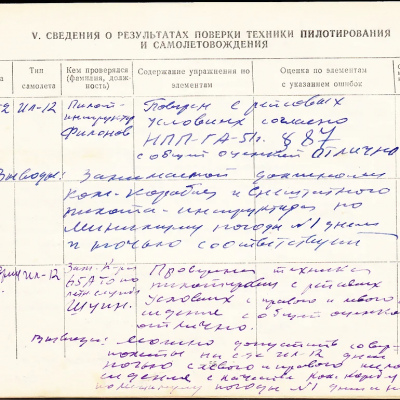 V. СВЕДЕНИЯ О РЕЗУЛЬТАТАХ ПОВЕРКИ ТЕХНИКИ ПИЛОТИРОВАНИЯ
И САМОЛЕТОВОЖДЕНИЯ
Тип самолета
Кем проверялся (фамилия, должность)
Содержание упражнения по элементам
Оценка по элементам с указанием ошибок
Ил-12
Пилот-инструктор Филонов
с рейсовых
условиях согласно
НПП-ГА-51г. § 87
с общей оценкой отлично
Выводы: Занимаемой должности
Ком. Корабля и внештатного
пилота-инструктора по
минимуму погоды №1 днем
и ночью соответствует
Ил-12
Зам. К-ра
65 АТО по
летн. службе
Проверена техника
пилотирования с рейсовых
условиях с правого и левого
сидения с общей оценкой
отлично.
Выводы: Можно допустить
полеты на с-те Ил-12 днем
ночью с левого и правого
сидения в качестве ком. корабля
по минимуму погоды №1 днем и